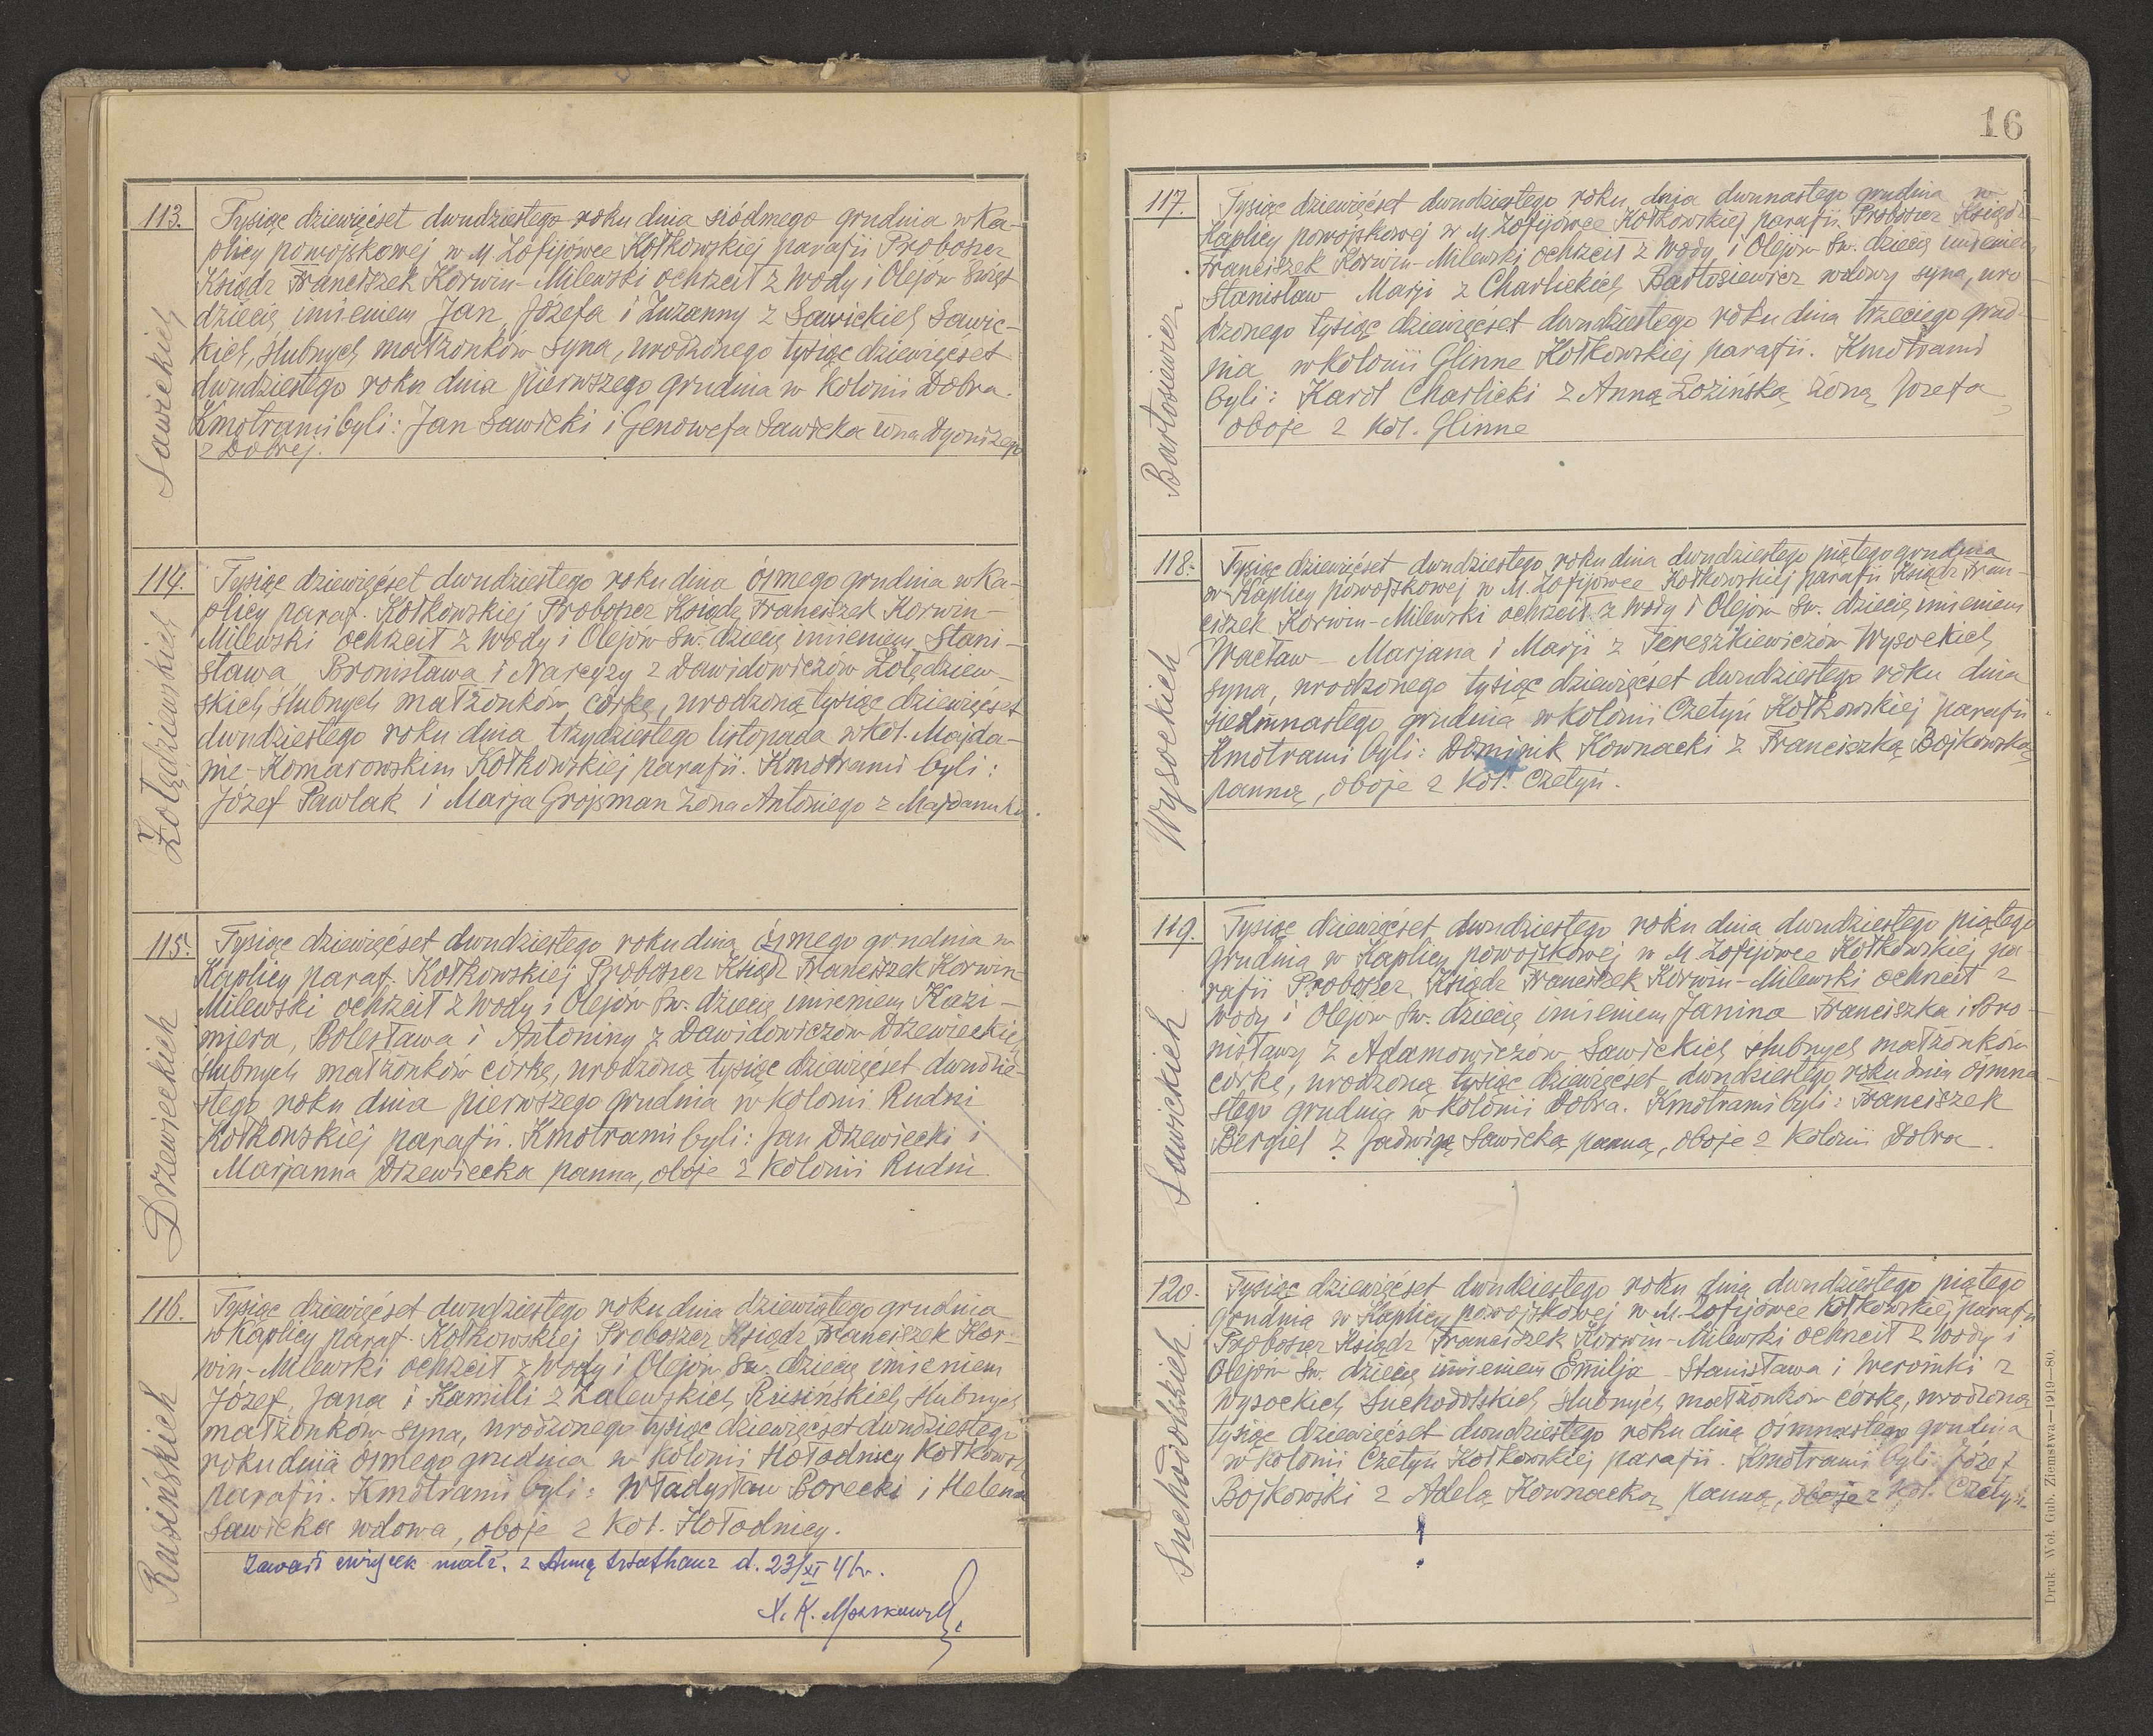 113.
Sawickich
Tysiąc dziewięćset dwudziestego roku dnia siódmego grudnia w Ka-
plicy powojskowej w M. Zofijówce Kołkowskiej parafii Proboszcz
Ksiądz Franciszek Korwin-Milewski ochrzcił z wody i Olejów Święt
dziecię imieniem Jan Józefa i Zuzanny z Sawickich Sawic-
kich, ślubnych małżonków syna, urodzonego tysiąc dziewięćset
dwudziestego roku dnia pierwszego grudnia w kolonii Dobra.
Kmotrami byli: Jan Sawicki i Genowefa Sawicka żona Dyonizego
z Dobrej.
114.
Żołędziewskich
Tysiąc dziewięćset dwudziestego roku dnia ósmego grudnia w Ka-
plicy paraf. Kołkowskiej Proboszcz Ksiądz Franciszek Korwin-
Milewski ochrzcił z wody i Olejów Św. dziecię imieniem Stani-
sława Bronisława i Narcyzy z Dawidowiczów Żołędziew-
skich ślubnych małżonków córkę, urodzoną tysiąc dziewięćset
dwudziestego roku dnia trzydziestego listopada w kol. Majda-
nie-Komarowskim Kołkowskiej parafii. Kmotrami byli:
Józef Pawlak i Marja Grojsman żona Antoniego z Majdaniku.
115.
Drzewieckich
Tysiąc dziewięćset dwudziestego roku dnia ósmego grudnia w
Kaplicy paraf. Kołkowskiej Proboszcz Ksiądz Franciszek Korwin-
Milewski ochrzcił z wody i Olejów Św. dziecię imieniem Kazi-
miera, Bolesława i Antoniny z Dawidowiczów Drzewieckich
ślubnych małżonków córkę, urodzoną tysiąc dziewięćset dwudzie-
stego roku dnia pierwszego grudnia w kolonii Rudni
Kołkowskiej parafii. Kmotrami byli: Jan Drzewiecki i
Marjanna Drzewiecka panna, oboje z kolonii Rudni
116.
Rusińskich
Tysiąc dziewięćset dwudziestego roku dnia dziewiątego grudnia
w Kaplicy paraf. Kołkowskiej Proboszcz Ksiądz Franciszek Kor-
win-Milewski ochrzcił z wody i Olejów Św. dziecię imieniem
Józef, Jana i Kamilli z Zalewskich Rusińskich ślubnych
małżonków syna, urodzonego tysiąc dziewięćset dwudziestego
roku dnia ósmego grudnia w kolonii Hołodnicy Kołkowsk.
parafii. Kmotrami byli: Władysław Borecki i Helena
Sawicka wdowa, oboje z kol. Hołodnicy.
Zawarł związek małż. z Anną d. 23/XI 41 r.
X. K.
16
117.
Bartosiewicz
Tysiąc dziewięćset dwudziestego roku dnia dwunastego grudnia w
Kaplicy powojskowej w M. Zofijówce Kołkowskiej parafii Proboszcz Ksiądz
Franciszek Korwin-Milewski ochrzcił z wody i Olejów Św. dziecię imieniem
Stanisław Marji z Charlickich Bartosiewicz wdowy syna, uro-
dzonego tysiąc dziewięćset dwudziestego roku dnia trzeciego grud-
nia w kolonii Glinne Kołkowskiej parafii. Kmotrami
byli: Karol Charlicki z Anną Łozińską żoną Józefa
oboje z kol. Glinne
118.
Wysockich
Tysiąc dziewięćset dwudziestego roku dnia dwudziestego piątego grudnia
w Kaplicy powojskowej w M. Zofijówce Kołkowskiej parafii Ksiądz Fran-
ciszek Korwin-Milewski ochrzcił z wody i Olejów Św. dziecię imieniem
Wacław - Marjana i Marji z Tereszkiewiczów Wysockich
syna, urodzonego tysiąc dziewięćset dwudziestego roku dnia
siedmnastego grudnia w kolonii Czetyń Kołkowskiej parafii
Kmotrami byli: Dominik Kownacki z Franciszką Bojkowską
panną, oboje z kol. Czetyń.
119.
Sawickich
Tysiąc dziewięćset dwudziestego roku dnia dwudziestego piątego
grudnia w Kaplicy powojskowej w M. Zofijówce Kołkowskiej pa-
rafii Proboszcz Ksiądz Franciszek Korwin-Milewski ochrzcił z
wody i Olejów Św. dziecię imieniem Janina Franciszka i Bro-
nisławy z Adamowiczów Sawickich ślubnych małżonków
córkę, urodzoną tysiąc dziewięćset dwudziestego roku dnia ósmna-
stego grudnia w kolonii Dobra. Kmotrami byli: Franciszek
Bergiel z Jadwigą Sawicką panną, oboje z kolonii Dobra.
120.
Suchodolskich
Tysiąc dziewięćset dwudziestego roku dnia dwudziestego piątego
grudnia w Kaplicy powojskowej w M. Zofijówce Kołkowskiej parafii
Proboszcz Ksiądz Franciszek Korwin-Milewski ochrzcił z wody i
Olejów Św. dziecię imieniem Emilja - Stanisława i Weroniki z
Wysockich Suchodolskich ślubnych małżonków córkę, urodzoną
tysiąc dziewięćset dwudziestego roku dnia ósmnastego grudnia
w kolonii Czetyń Kołkowskiej parafii. Kmotrami byli: Józef
Bojkowski z Adelą Kownacką panną, oboje z kol. Czetyń.
Druk. Woł. Gub. Ziemstwa—1919—80.